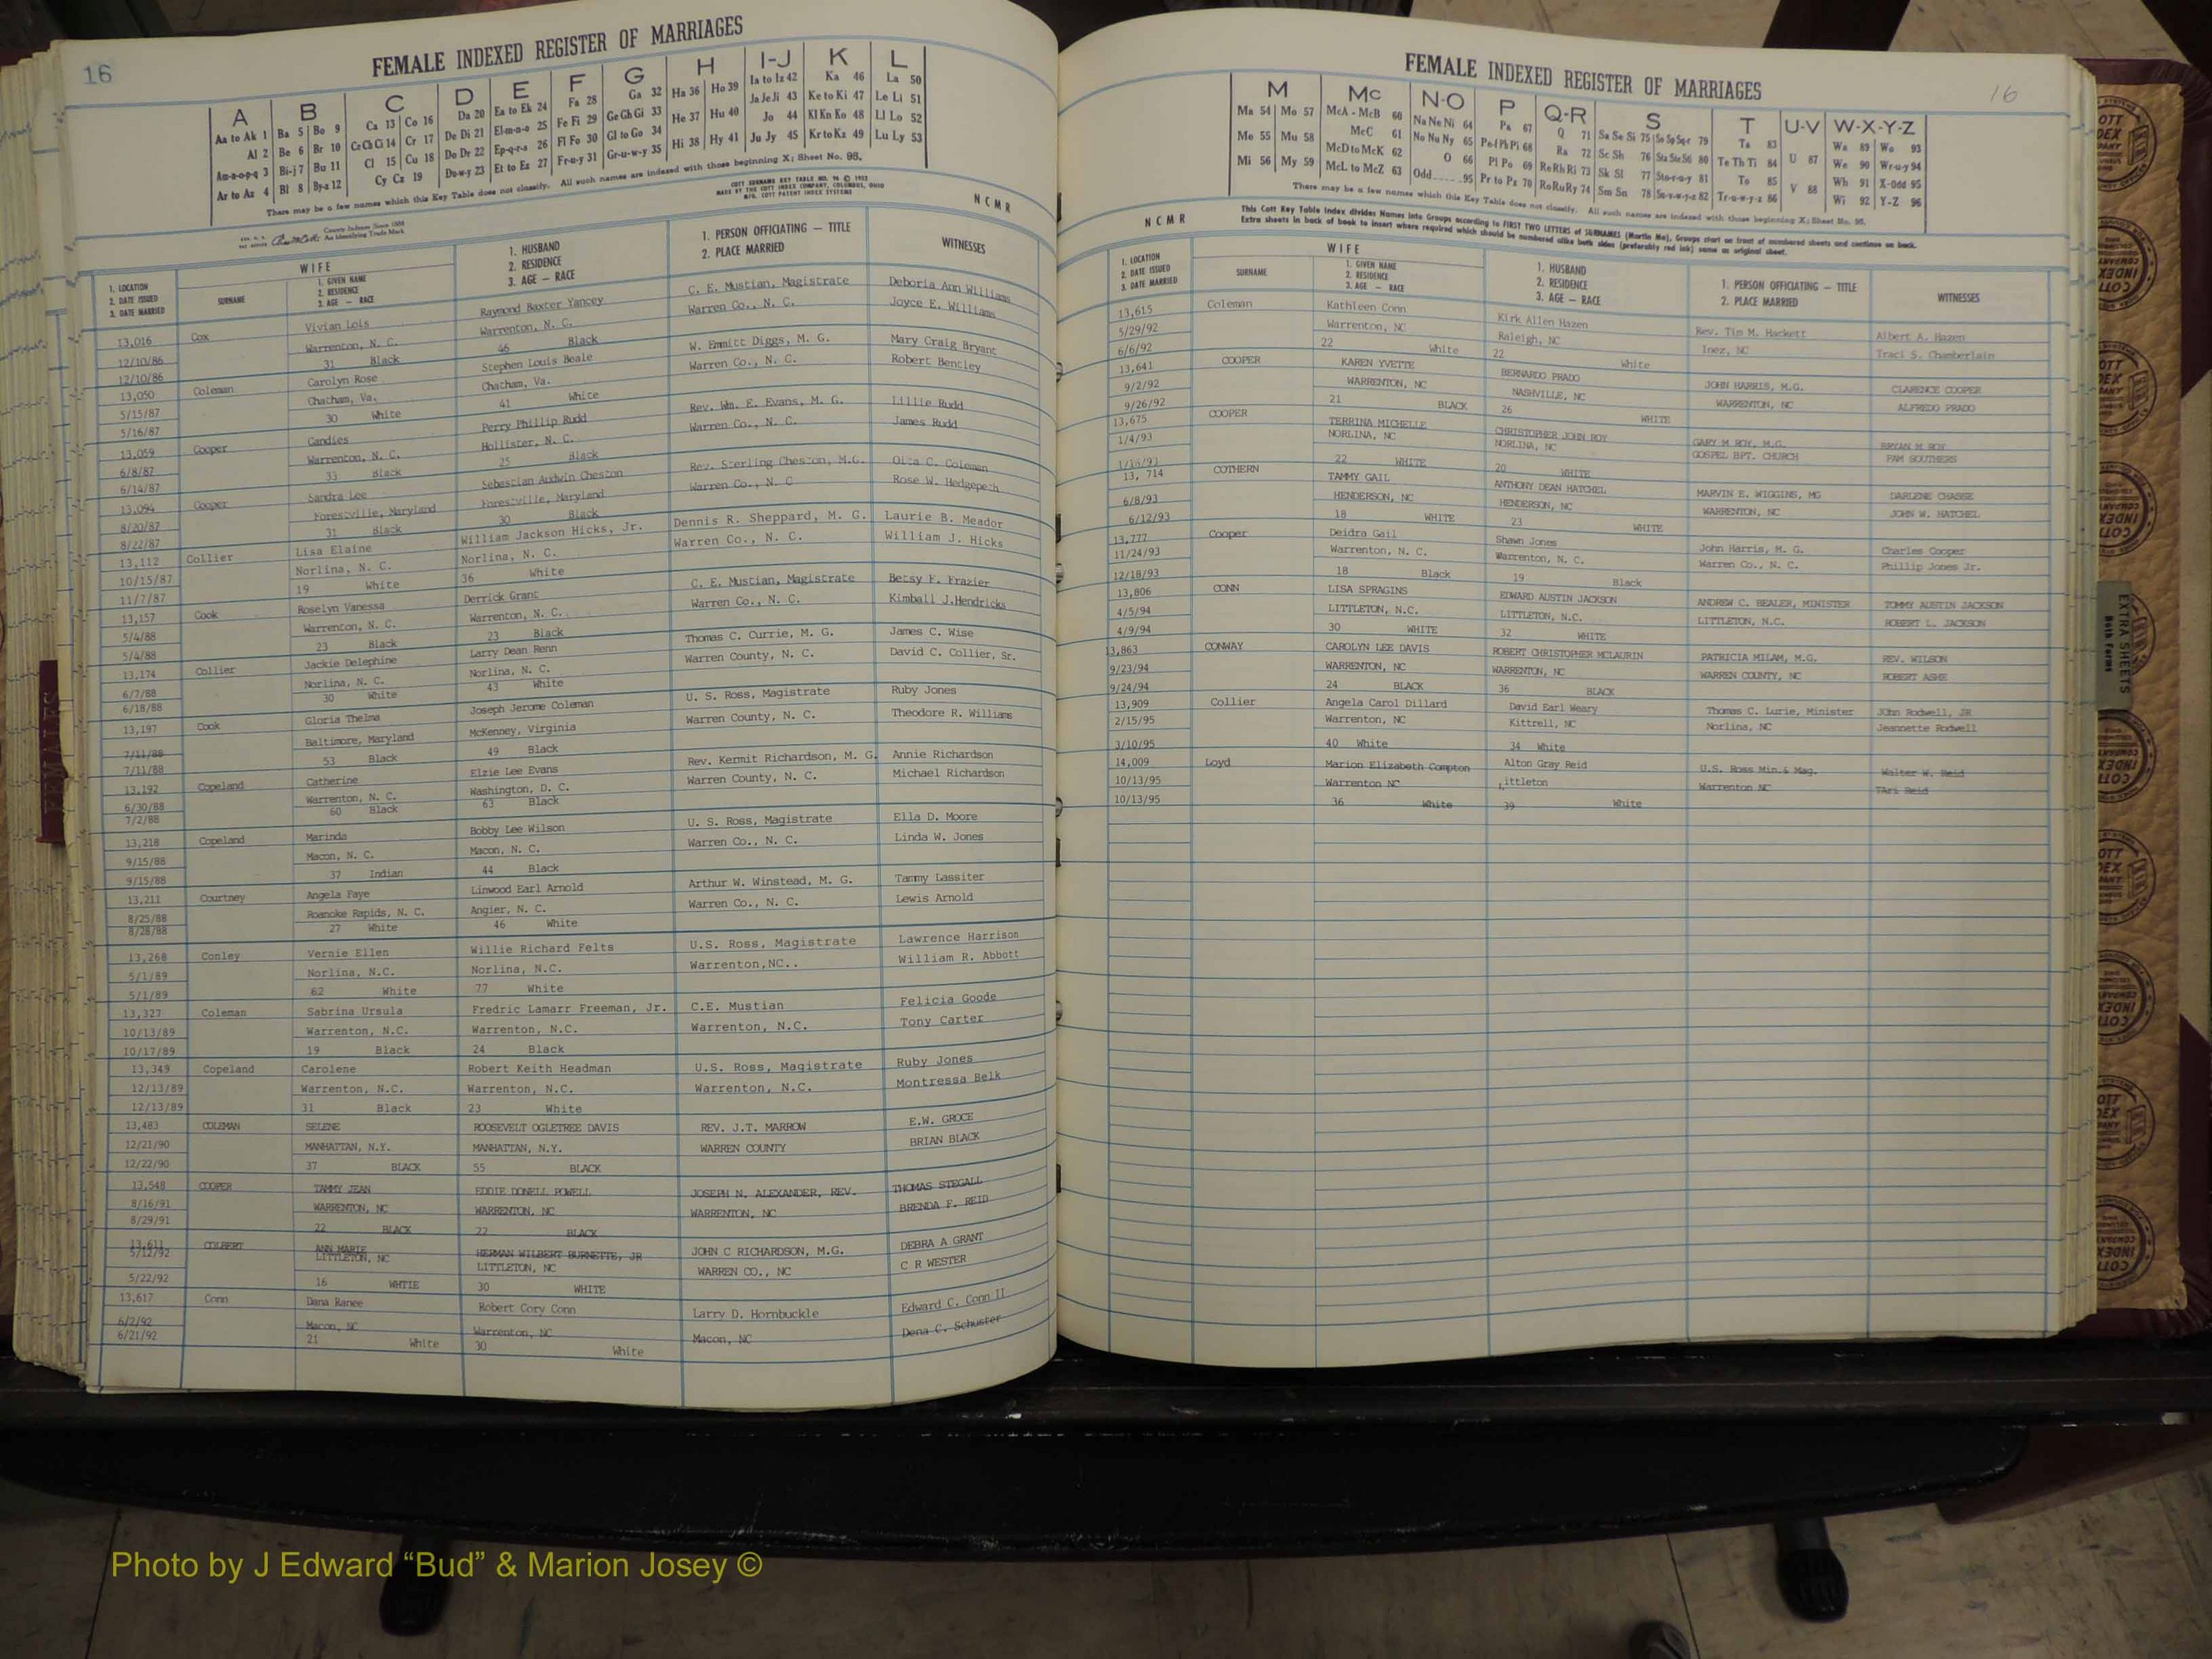 16
FEMALE INDEXED REGISTER OF MARRIAGES
A B C D E F G H I-J K L
Aa to Ak 1 Ba 5 Bo 9 Ca 13 Co 16 Da 20 Ea to Ek 24 Fa 28 Ga 32 Ha 36 Ho 39 Ia to Iz 42 Ka 46 La 50
Al 2 Be 6 Br 10 Ce Ch Ci 14 Cr 17 De Di 21 El-m-n-o 25 Fe Fi 29 Ge Gh Gi 33 He 37 Hu 40 Ja Je Ji 43 Ke to Ki 47 Le Li 51
Am-n-o-p-q 3 Bi-j 7 Bu 11 Cl 15 Cu 18 Do Dr 22 Ep-q-r-s 26 Fl Fo 30 Gl to Go 34 Hi 38 Hy 41 Jo 44 Kl Kn Ko 48 Ll Lo 52
Ar to Az 4 Bl 8 By-z 12 Cy Cz 19 Du-w-y 23 Et to Ez 27 Fr-u-y 31 Gr-u-w-y 35 Ju Jy 45 Kr to Kz 49 Lu Ly 53
There may be a few names which this Key Table does not classify. All such names are indexed with those beginning X; Sheet No. 95.
NCMR
1. LOCATION
2. DATE ISSUED
3. DATE MARRIED
WIFE
SURNAME
1. GIVEN NAME
2. RESIDENCE
3. AGE — RACE
1. HUSBAND
2. RESIDENCE
3. AGE — RACE
1. PERSON OFFICIATING — TITLE
2. PLACE MARRIED
WITNESSES
13,016 Cox Vivian Lois Raymond Baxter Yancey C. E. Mustian, Magistrate Deboria Ann Williams
12/10/86 Warrenton, N. C. Warrenton, N. C. Warren Co., N. C. Joyce E. Williams
12/10/86 31 Black 46 Black
13,050 Coleman Carolyn Rose Stephen Louis Beale W. Emmitt Diggs, M. G. Mary Craig Bryant
5/15/87 Chatham, Va. Chatham, Va. Warren Co., N. C. Robert Bentley
5/16/87 30 White 41 White
13,059 Cooper Candies Perry Phillip Rudd Rev. Wm. E. Evans, M. G. Lillie Rudd
6/8/87 Warrenton, N. C. Hollister, N. C. Warren Co., N. C. James Rudd
6/14/87 33 Black 25 Black
13,094 Cooper Sandra Lee Sebastian Audwin Cheston Rev. Sterling Cheston, M.G. Olta C. Coleman
8/20/87 Forestville, Maryland Forestville, Maryland Warren Co., N. C Rose W. Hedgepeth
8/22/87 31 Black 30 Black
13,112 Collier Lisa Elaine William Jackson Hicks, Jr. Dennis R. Sheppard, M. G. Laurie B. Meador
10/15/87 Norlina, N. C. Norlina, N. C. Warren Co., N. C. William J. Hicks
11/7/87 19 White 36 White
13,157 Cook Roselyn Vanessa Derrick Grant C. E. Mustian, Magistrate Betsy F. Frazier
5/4/88 Warrenton, N. C. Warrenton, N. C. Warren Co., N. C. Kimball J.Hendricks
5/4/88 23 Black 23 Black
13,174 Collier Jackie Delephine Larry Dean Renn Thomas C. Currie, M. G. James C. Wise
6/7/88 Norlina, N. C. Norlina, N. C. Warren County, N. C. David C. Collier, Sr.
6/18/88 30 White 43 White
13,197 Cook Gloria Thelma Joseph Jerome Coleman U. S. Ross, Magistrate Ruby Jones
7/11/88 Baltimore, Maryland McKenney, Virginia Warren County, N. C. Theodore R. Williams
7/11/88 53 Black 49 Black
13,192 Copeland Catherine Elzie Lee Evans Rev. Kermit Richardson, M. G. Annie Richardson
6/30/88 Warrenton, N. C. Washington, D. C. Warren County, N. C. Michael Richardson
7/2/88 60 Black 63 Black
13,218 Copeland Marinda Bobby Lee Wilson U. S. Ross, Magistrate Ella D. Moore
9/15/88 Macon, N. C. Macon, N. C. Warren Co., N. C. Linda W. Jones
9/15/88 37 Indian 44 Black
13,211 Courtney Angela Faye Linwood Earl Arnold Arthur W. Winstead, M. G. Tammy Lassiter
8/25/88 Roanoke Rapids, N. C. Angier, N. C. Warren Co., N. C. Lewis Arnold
8/28/88 27 White 46 White
13,268 Conley Vernie Ellen Willie Richard Felts U.S. Ross, Magistrate Lawrence Harrison
5/1/89 Norlina, N.C. Norlina, N.C. Warrenton,NC.. William R. Abbott
5/1/89 62 White 77 White
13,327 Coleman Sabrina Ursula Fredric Lamarr Freeman, Jr. C.E. Mustian Felicia Goode
10/13/89 Warrenton, N.C. Warrenton, N.C. Warrenton, N.C. Tony Carter
10/17/89 19 Black 24 Black
13,349 Copeland Carolene Robert Keith Headman U.S. Ross, Magistrate Ruby Jones
12/13/89 Warrenton, N.C. Warrenton, N.C. Warrenton, N.C. Montressa Belk
12/13/89 31 Black 23 White
13,483 COLEMAN SELENE ROOSEVELT OGLETREE DAVIS REV. J.T. MARROW E.W. GROCE
12/21/90 MANHATTAN, N.Y. MANHATTAN, N.Y. WARREN COUNTY BRIAN BLACK
12/22/90 37 BLACK 55 BLACK
13,548 COOPER TAMMY JEAN EDDIE DONELL POWELL JOSEPH N. ALEXANDER, REV. THOMAS STEGALL
8/16/91 WARRENTON, NC WARRENTON, NC WARRENTON, NC BRENDA F. REID
8/29/91 22 BLACK 22 BLACK
13,611 COLBERT ANN MARIE HERMAN WILBERT BURNETTE, JR JOHN C RICHARDSON, M.G. DEBRA A GRANT
5/12/92 LITTLETON, NC LITTLETON, NC WARREN CO., NC C R WESTER
5/22/92 16 WHTIE 30 WHITE
13,617 Conn Dana Ranee Robert Cory Conn Larry D. Hornbuckle Edward C. Conn II
6/2/92 Macon, NC Warrenton, NC Macon, NC Dena C. Schuster
6/21/92 21 White 30 White
FEMALE INDEXED REGISTER OF MARRIAGES
16
M Mc N-O P Q-R S T U-V W-X-Y-Z
Ma 54 Mo 57 McA - McB 60 Na Ne Ni 64 Pa 67 Q 71 Sa Se Si 75 So Sp Sq-r 79 Ta 83 Wa 89 Wo 93
Me 55 Mu 58 McC 61 No Nu Ny 65 Pe-f Ph Pi 68 Ra 72 Sc Sh 76 Sta Ste Sti 80 Te Th Ti 84 U 87 We 90 Wr-u-y 94
Mi 56 My 59 McD to McK 62 O 66 Pl Po 69 Re Rh Ri 73 Sk Sl 77 Sto-r-u-y 81 To 85 V 88 Wh 91 X-Odd 95
McL to McZ 63 Odd 95 Pr to Pz 70 Ro Ru Ry 74 Sm Sn 78 Su-v-w-y-z 82 Tr-u-w-y-z 86 Wi 92 Y-Z 96
There may be a few names which this Key Table does not classify. All such names are indexed with those beginning X; Sheet No. 95.
NCMR
This Cott Key Table Index divides Names into Groups according to FIRST TWO LETTERS of SURNAMES (Martin Ma), Groups start on front of numbered sheets and continue on back.
Extra sheets in back of book to insert where required which should be numbered alike both sides (preferably red ink) same as original sheet.
1. LOCATION
2. DATE ISSUED
3. DATE MARRIED
WIFE
SURNAME
1. GIVEN NAME
2. RESIDENCE
3. AGE — RACE
1. HUSBAND
2. RESIDENCE
3. AGE — RACE
1. PERSON OFFICIATING — TITLE
2. PLACE MARRIED
WITNESSES
13,615 Coleman Kathleen Conn Kirk Allen Hazen Rev. Tim M. Hackett Albert A. Hazen
5/29/92 Warrenton, NC Raleigh, NC Inez, NC Traci S. Chamberlain
6/6/92 22 White 22 White
13,641 COOPER KAREN YVETTE BERNARDO PRADO JOHN HARRIS, M.G. CLARENCE COOPER
9/2/92 WARRENTON, NC NASHVILLE, NC WARRENTON, NC ALFREDO PRADO
9/26/92 21 BLACK 26 WHITE
13,675 COOPER TERRINA MICHELLE CHRISTOPHER JOHN ROY GARY M ROY, M.G. BRYAN M ROY
1/4/93 NORLINA, NC NORLINA, NC GOSPEL BPT. CHURCH PAM SOUTHERS
22 WHITE 20 WHITE
13, 714 COTHERN TAMMY GAIL ANTHONY DEAN HATCHEL MARVIN E. WIGGINS, MG DARLENE CHASSE
6/8/93 HENDERSON, NC HENDERSON, NC WARRENTON, NC JOHN W. HATCHEL
6/12/93 18 WHITE 23 WHITE
13,777 Cooper Deidra Gail Shawn Jones John Harris, M. G. Charles Cooper
11/24/93 Warrenton, N. C. Warrenton, N. C. Warren Co., N. C. Phillip Jones Jr.
12/18/93 18 Black 19 Black
13,806 CONN LISA SPRAGINS EDWARD AUSTIN JACKSON ANDREW C. BEALER, MINISTER TOMMY AUSTIN JACKSON
4/5/94 LITTLETON, N.C. LITTLETON, N.C. LITTLETON, N.C. ROBERT L. JACKSON
4/9/94 30 WHITE 32 WHITE
13,863 CONWAY CAROLYN LEE DAVIS ROBERT CHRISTOPHER MCLAURIN PATRICIA MILAM, M.G. REV. WILSON
9/23/94 WARRENTON, NC WARRENTON, NC WARREN COUNTY, NC ROBERT ASHE
9/24/94 24 BLACK 36 BLACK
13,909 Collier Angela Carol Dillard David Earl Weary Thomas C. Lurie, Minister JOhn Rodwell, JR
2/15/95 Warrenton, NC Kittrell, NC Norlina, NC Jeannette Rodwell
3/10/95 40 White 34 White
14,009 Loyd Marion Elizabeth Compton Alton Gray Reid U.S. Ross Min.& Mag. Walter W. Reid
10/13/95 Warrenton NC Littleton Warrenton NC TAri Reid
10/13/95 36 White 39 White
EXTRA SHEETS
Both Forms
FEMALES
Photo by J Edward “Bud” & Marion Josey ©